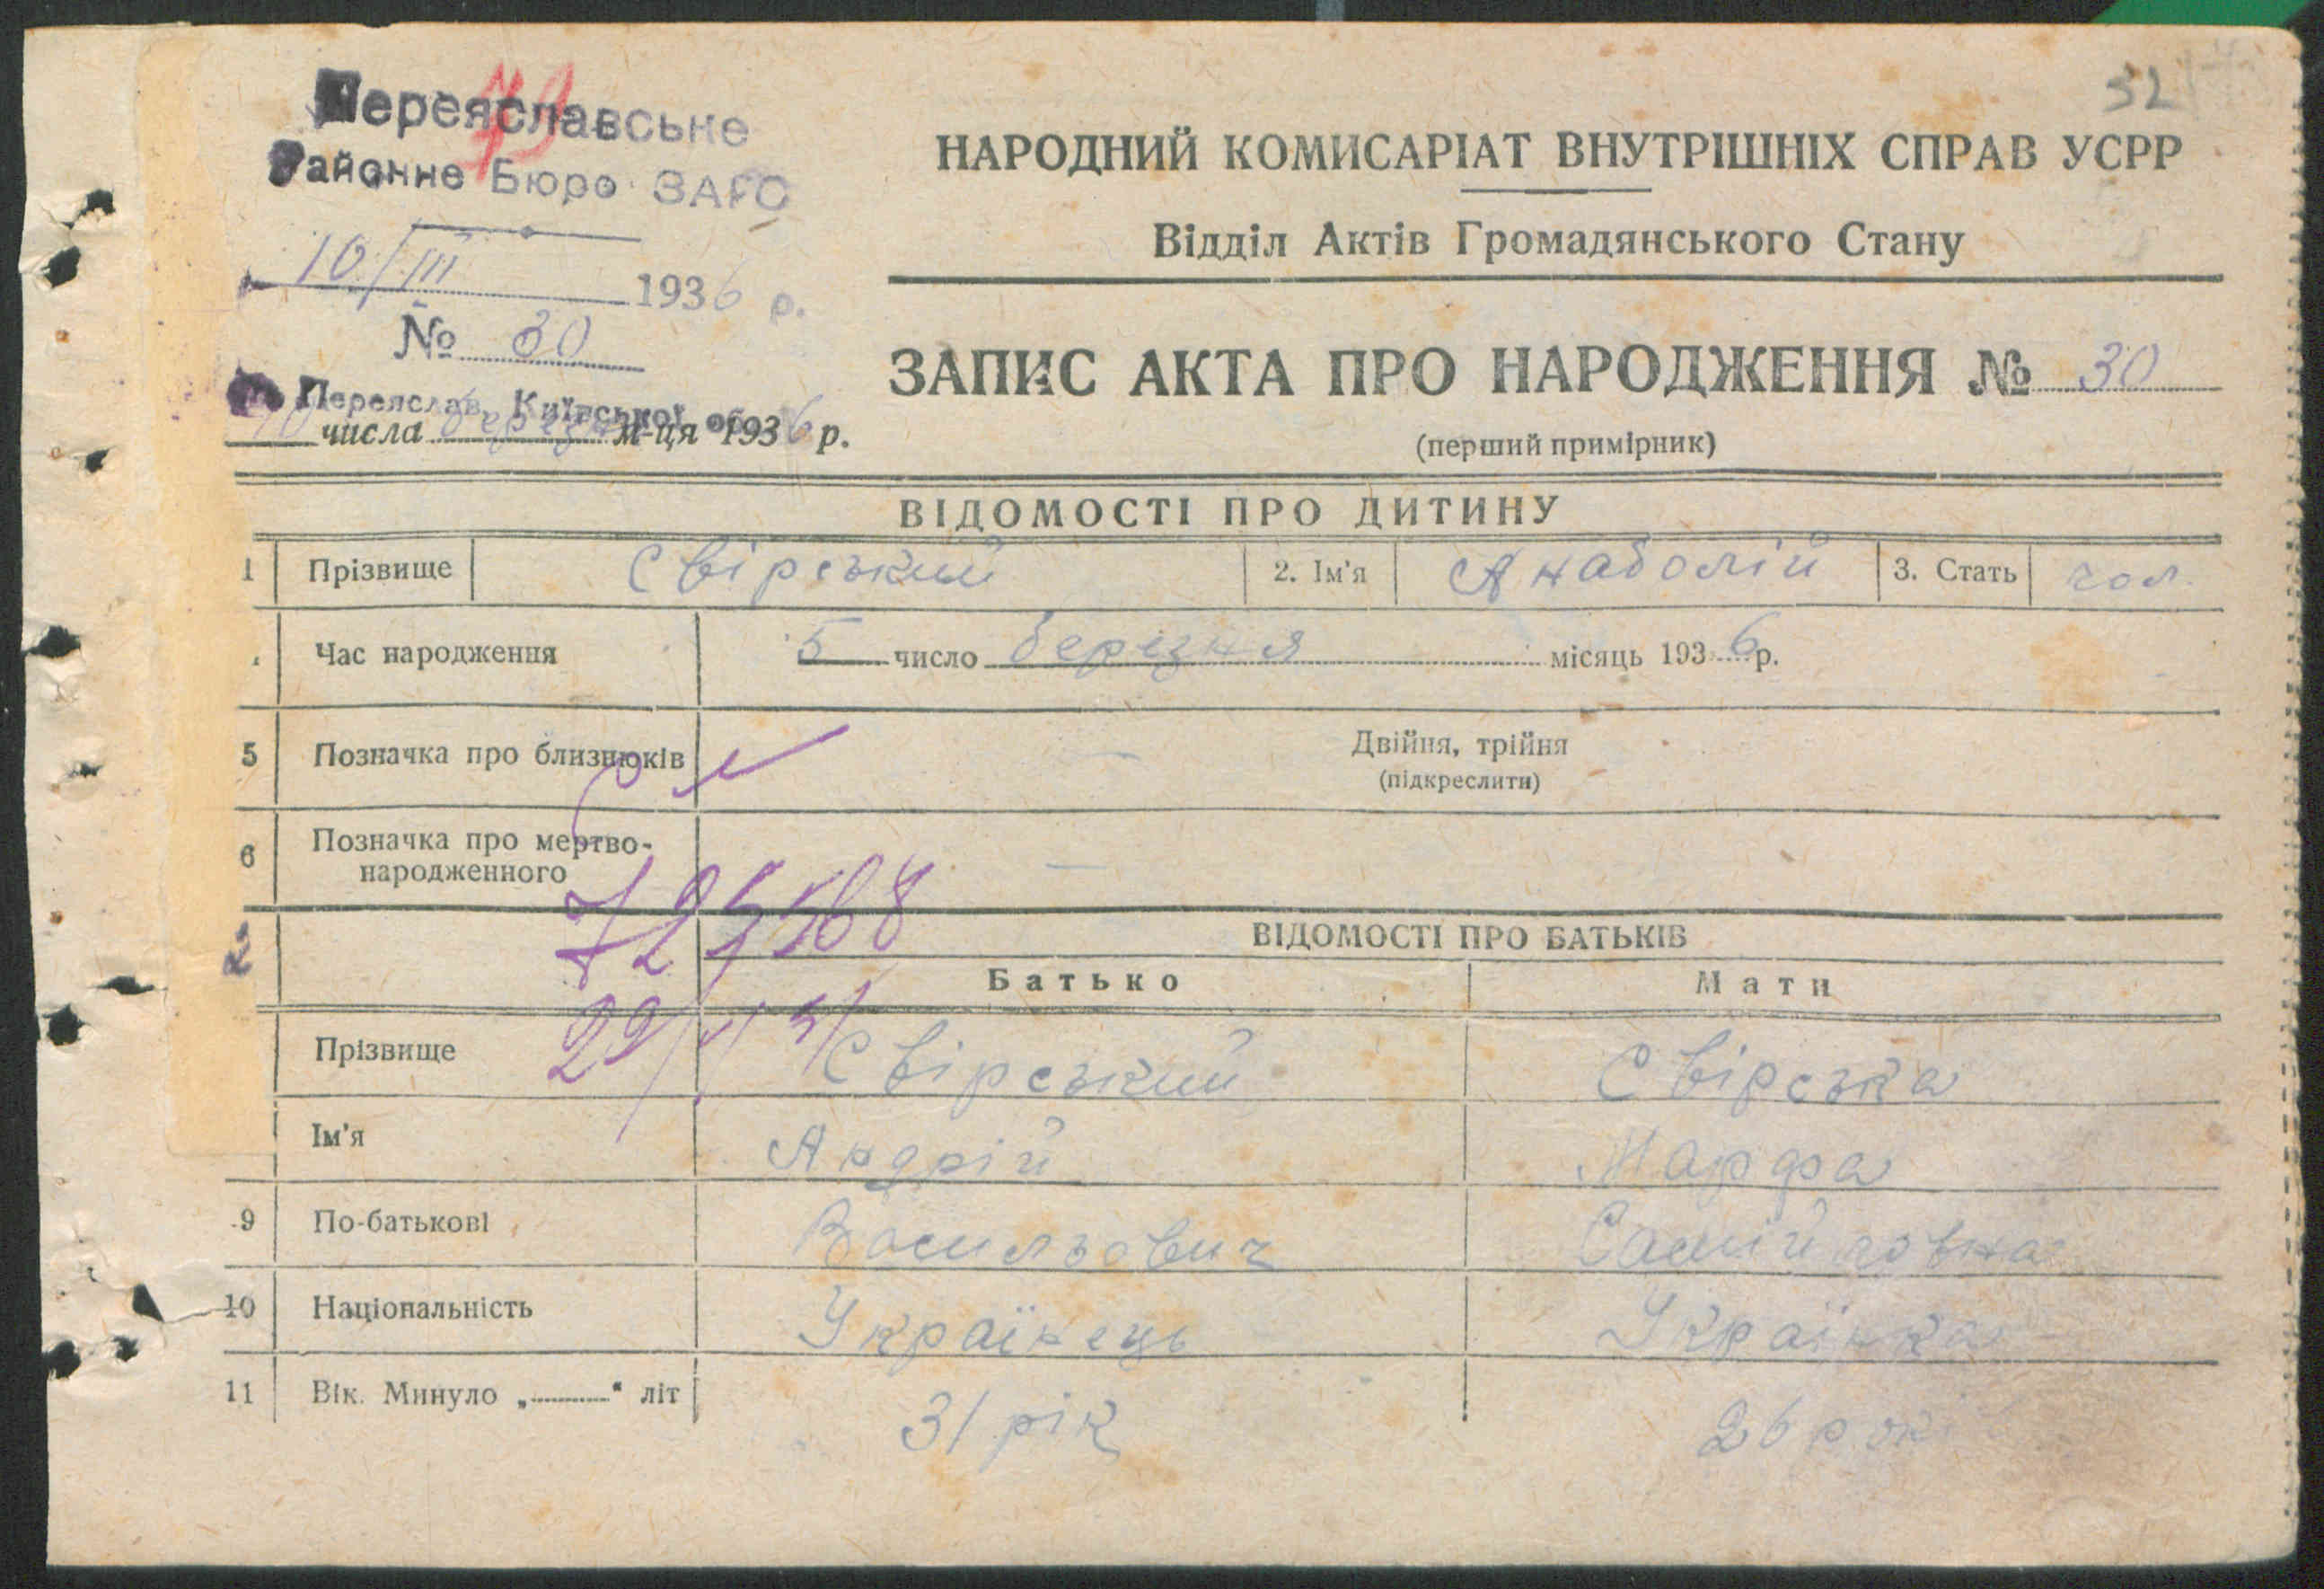 32
79
Переяславське
Районне Бюро ЗАГС
10/III 1936 р.
№ 30
Переяслав, Київської обл.
10 числа березня м-ця 1936 р.
НАРОДНИЙ КОМИСАРІАТ ВНУТРІШНІХ СПРАВ УСРР
Відділ Актів Громадянського Стану
ЗАПИС АКТА ПРО НАРОДЖЕННЯ № 30
(перший примірник)
ВІДОМОСТІ ПРО ДИТИНУ
1 Прізвище Свірський 2. Ім'я Анатолій 3. Стать чол.
Час народження 5 число березня місяць 1936 р.
5 Позначка про близнюків — Двійня, трійня
(підкреслити)
6 Позначка про мертво-
народженного —
725568
ВІДОМОСТІ ПРО БАТЬКІВ
Батько Мати
Прізвище Свірський Свірська
Ім'я Андрій Марфа
9 По-батькові Васильович Самійловна
10 Національність Українець Українка
11 Вік. Минуло „ “ літ 31 рік 26 рокі